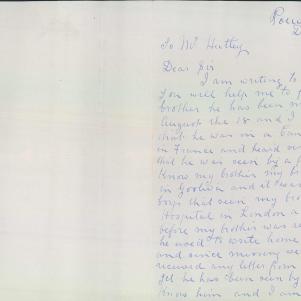 To Mr Huttley
Dear Sir
I am writing to
you will help me to f
brother he has been m
August the 18 and I
that he was in a
in France and heard
that he was seen by a
know my brother my br
in Goolwa and it was
boys that seen my bro
Hospital in London a
before my brother was re
he used to write home
and since missing we
received any letter from
yet he has been seen by
know him and I am